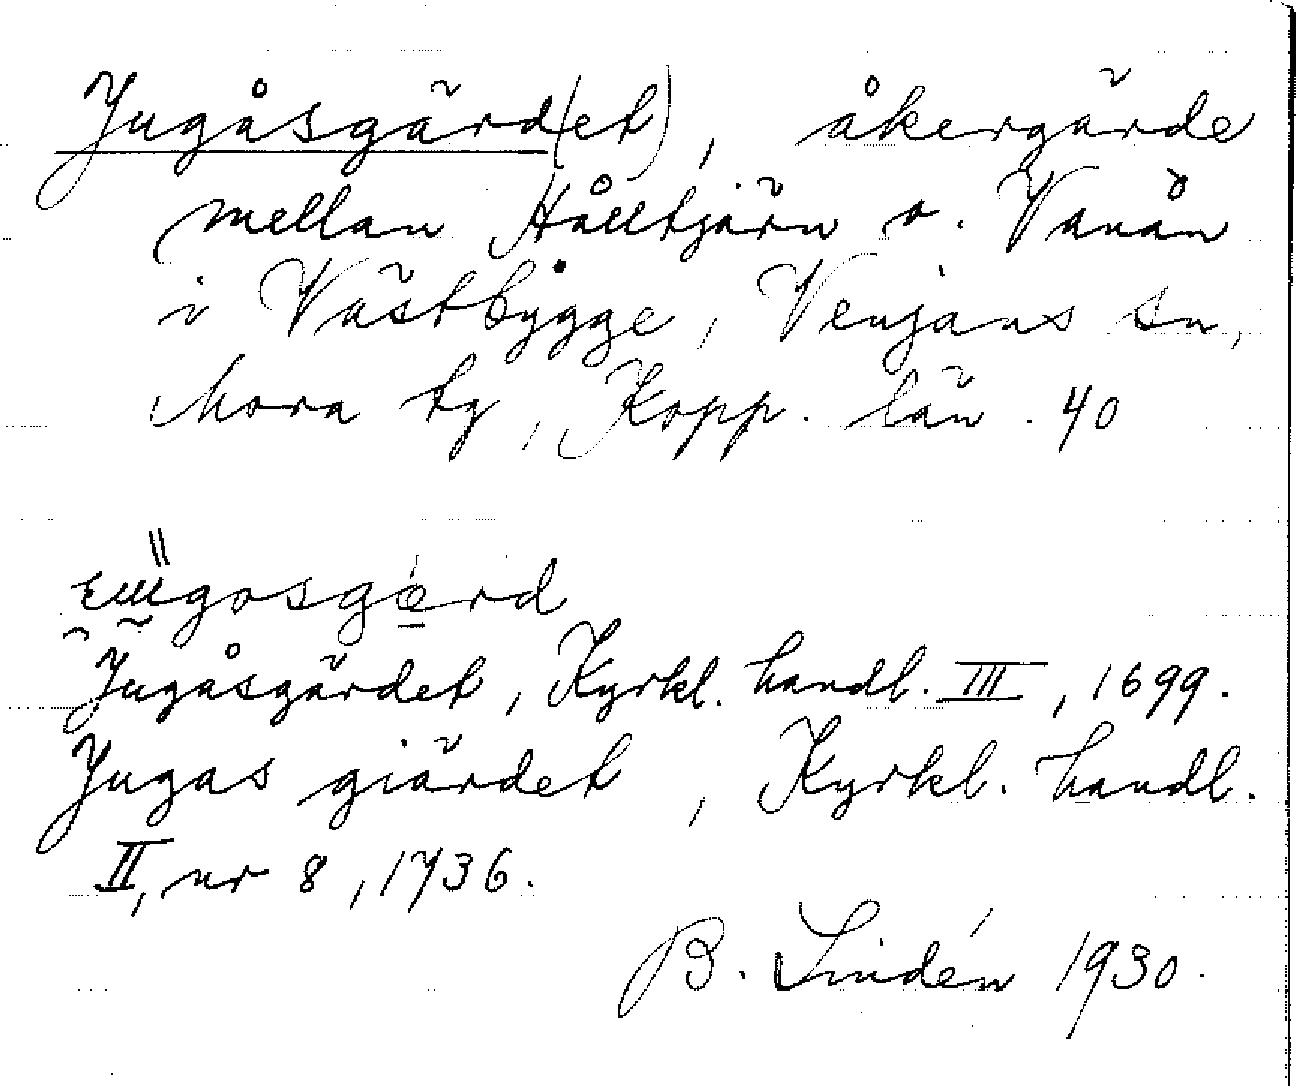 Jugåsgärd(et), åkergärde
mellan Hålltjärn o. Vanån
i Västbygge, Venjans sn,
Mora tg, Kopp. län. 40
Jugåsgärdet, Kyrkl. handl. III, 1699.
Jugas giärdet, Kyrkl. handl.
II, nr 8, 1736.
B. Lindén 1930.